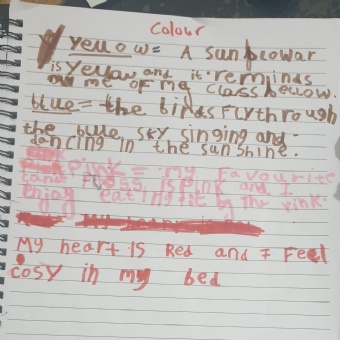 Colour
yellow = A sunflowar
is yellow and it reminds
me of my class bellow.
blue = the birds fly through
the blue sky singing and
dancing in the sunshine.
Pink = my favourite
candy floss is pink and I
enjoy eating it by the rink.
My heart is Red and I Feel
cosy in my bed